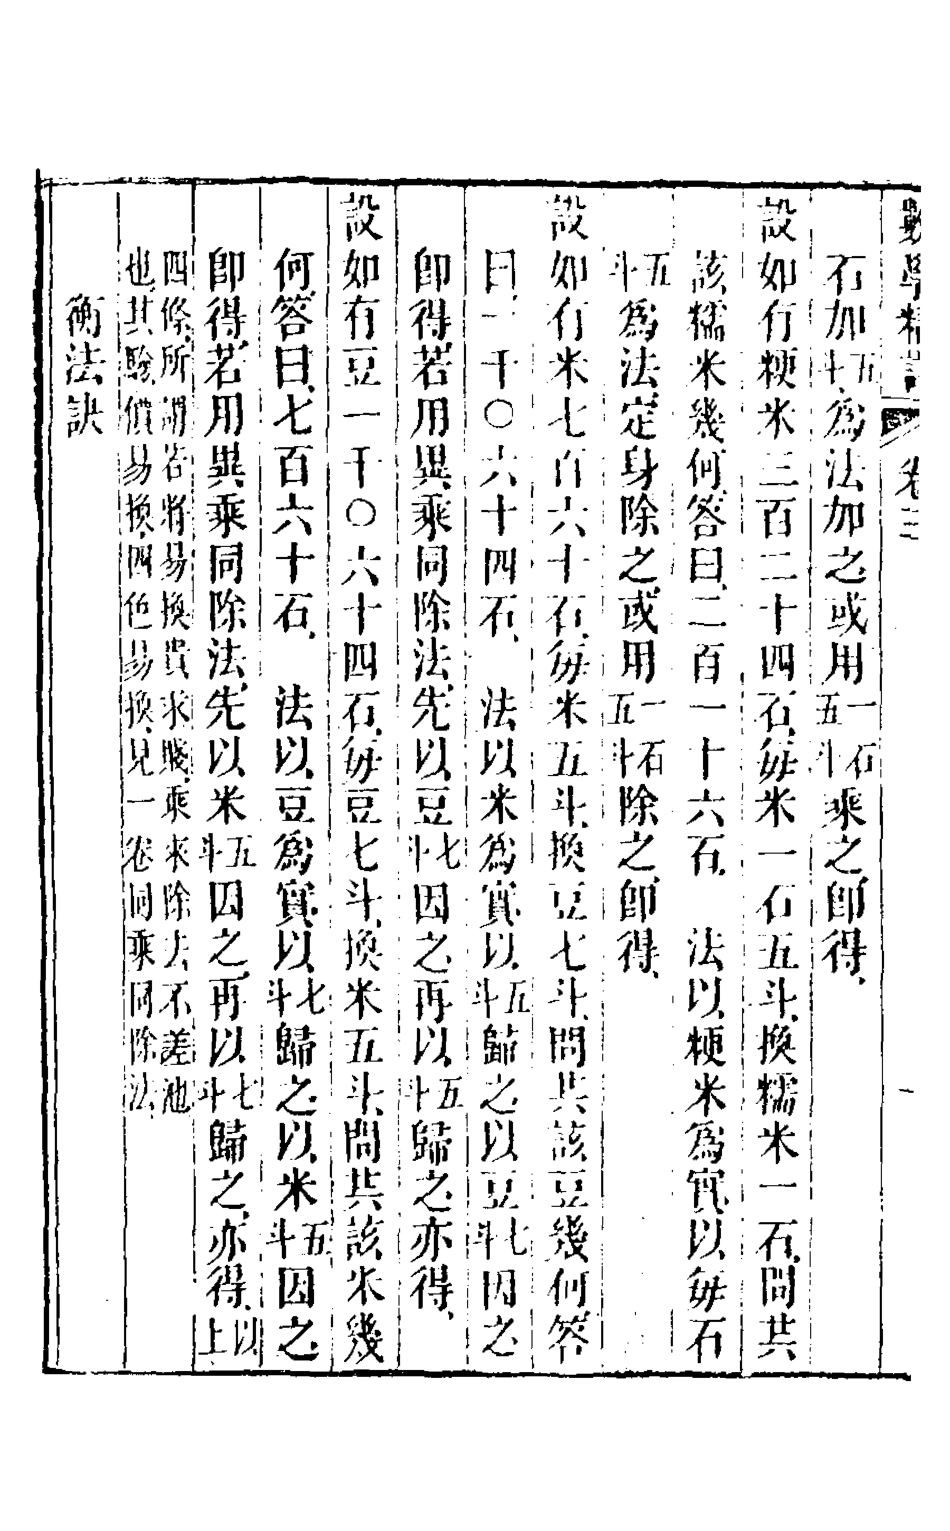 數學精詳 卷三 一
石加五斗爲法加之或用一石五斗乘之卽得、
設如有粳米三百二十四石、每米一石五斗、換糯米一石、問共
該糯米幾何、答曰、二百一十六石、　法以粳米爲實、以每石
五斗爲法、定身除之、或用一石五斗除之、卽得、
設如有米七百六十石、每米五斗、換豆七斗、問共該豆幾何、答
曰、一千〇六十四石、　法以米爲實、以五斗歸之、以豆七斗因之、
卽得、若用異乘同除法、先以豆七斗因之、再以五斗歸之、亦得、
設如有豆一千〇六十四石、每豆七斗、換米五斗、問共該米幾
何、答曰、七百六十石、　法以豆爲實、以七斗歸之、以米五斗因之、
卽得、若用異乘同除法、先以米五斗因之、再以七斗歸之、亦得、以上
四條、所謂若將易換貴求賤、乘來除去不差池
也、其驗價易換、四色易換、見一卷同乘同除法、
衡法訣